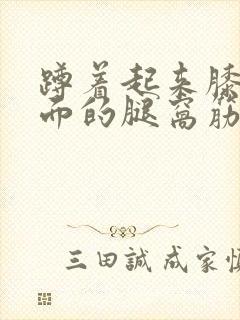 蹲着起来膝
而的腿窝筋
三田誠成家慎